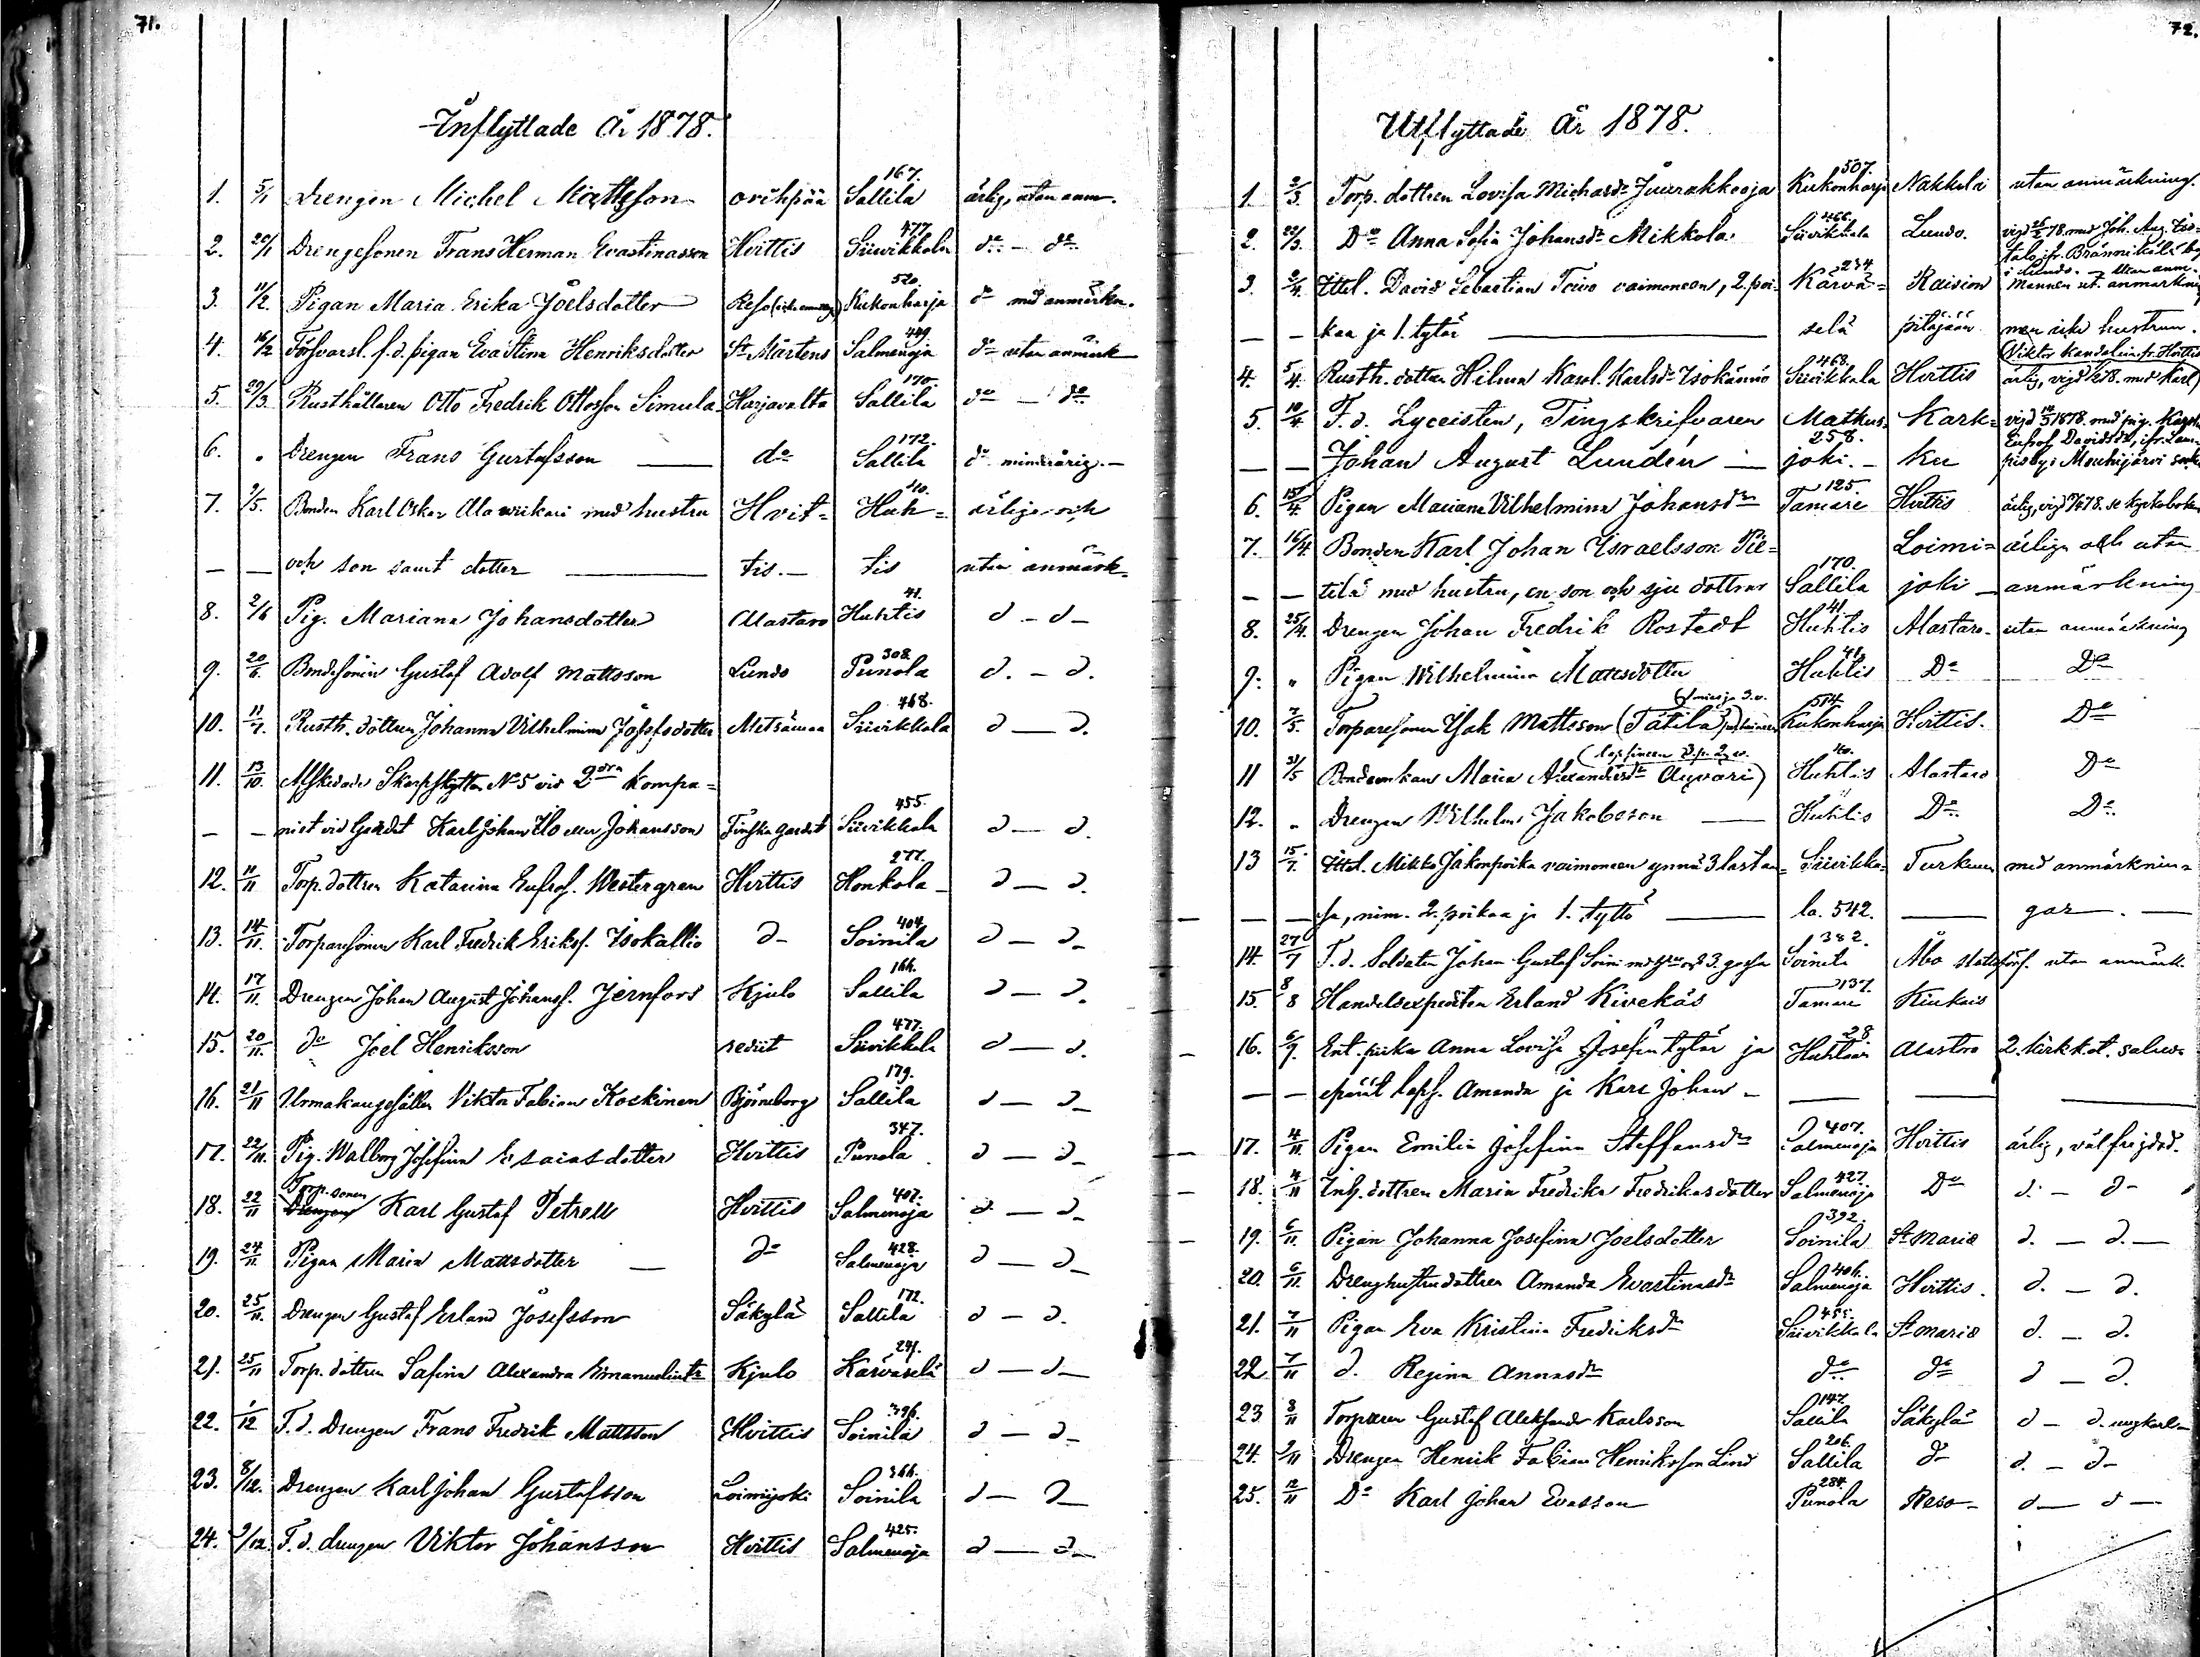 71.
Inflyttade År 1878.
1. 5/1 Drengen Michel Mattsson Orihpää 167. Sallila ärlig, utan anm.
2. 20/1 Drengesonen Frans Herman Evastinasson Hvittis 477. Siivikkala do - do
3. 11/2 Pigan Maria Erika Joelsdotter Reso 520. Kukonharja do med anmärkn.
4. 16/2 Förvarsl. f.d. pigan Eva Stina Henriksdotter St Mårtens 449. Salmenoja do utan anmärk
5. 29/3 Rusthållaren Otto Fredrik Ottosson Simula Harjavalta 170. Sallila do - do
6. " Drengen Frans Gustafsson — do 172. Sallila do minderårig. —
7. 2/5. Bonden Karl Oskar Alawiikari med hustru Hvit= 40. Huh= ärliga och
— — och son samt dotter — tis. — tis utan anmärk=
8. 2/6 Pig. Mariana Johansdotter Alastaro 41. Huhtis d - d -
9. 20/6. Bondesonen Gustaf Adolf Mattsson Lundo 308. Punola d. - d.
10. 11/7. Rusth. dottren Johanna Vilhelmina Josefsdotter Metsämaa 468. Siivikkala d — d.
11. 13/10. Afskedade Skarpskytten No 5 vid 2dra Kompa=
— — niet vid Gardet Karl Johan Johansson Finska gardet 455. Siivikkala d — d.
12. 11/11 Torp. dottren Katarina Eufros. Westergren Hvittis 277. Honkola — d — d.
13. 14/11. Torparesonen Karl Fredrik Eriks. Isokallio d - 404. Soinila d — d -
14. 17/11. Drengen Johan August Johanss. Jernfors Kjulo 166. Sallila d — d.
15. 20/11. do Joel Henriksson rediit 477. Siivikkala d — d.
16. 21/11 Urmakaregesällen Viktor Fabian Koskinen Björneborg 179. Sallila d — d -
17. 22/11. Pig. Walborg Josefina Esaiasdotter Hvittis 347. Punola d — d -
18. 22/11 Torp.sonen Karl Gustaf Petrell Hvittis 407. Salmenoja d — d -
19. 24/11. Pigan Maria Mattsdotter — do 428. Salmenoja d — d -
20. 25/11. Drengen Gustaf Erland Josefsson Säkylä 172. Sallila d — d.
21. 25/11 Torp. dottren Safina Alexandra Emanuelsdtr Kjulo 291. Karvaselä d — d —
22. 1/12 F. d. Drengen Frans Fredrik Mattsson Hvittis 396. Soinila d — d -
23. 8/12. Drengen Karl Johan Gustafsson Loimijoki 366. Soinila d — d —
24. 9/12. F. d. drengen Viktor Johansson Hvittis 425. Salmenoja d — d -
72.
Utflyttade År 1878.
1. 2/3. Torp. dottren Lovisa Michelsdr Juurakkooja 507. Kukonharja Nakkila utan anmärkning.
2. 22/3. Do Anna Sofia Johansdr Mikkola 466. Siivikkala Lundo. vigd 78. med Joh. Aug.
i Lundo. — utan anm.
3. 2/4. Ittel. David Sebastian Toivo vaimoneen, 2. poi= 234 Karva= Raision Mannen ut. anmärkning
— — kaa ja 1. tytär — selä pitäjään men icke hustrun.
Viktor Kandolin fr. Hvittis
4. 5/4. Rusth. dottren Hilma Karol. Karlsdr Isokännö 468. Siivikkala Hvittis ärlig, vigd 78. med Karl
5. 10/4. F. d. Lyceisten, Tingskrifvaren Matkus= Kark= vigd 1878. med pig.
— — Johan August Lundén — 258. joki. — ku Eufros. Davidsdtr, i Mouhijärvi
6. 15/4 Pigan Mariana Vilhelmina Johansdr 125 Tamare Hvittis ärlig, vigd 78. se kyrkoboken
7. 16/4. Bonden Karl Johan Israelsson Pie= Loimi= ärliga och utan
— — tilä med hustru, en son och sju döttrar 170. Sallila joki — anmärkning
8. 25/4. Drengen Johan Fredrik Rostedt 41. Huhtis Alastaro utan anmärkning
9. " Pigan Wilhelmina Mattsdotter 41. Huhtis Do Do
10. 7/5. Torparesonen Isak Mattsson (Tätilä) 514. Kukonharja Hvittis. Do
11 31/5 Bondeenkan Maria Alexandersdr Äyväri (lapsineen 3. p. 2. v.) 40. Huhtis Alastaro Do
12. " Drengen Wilhelm Jakobsson — Huhtis Do Do
13 15/7. Ittel. Mikko Jakonpoika vaimoneen ynnä 3 lastan= Siivikka= Turkuun med anmärknin=
— — sa, nim. 2. poikaa ja 1. tyttö — la. 542. — gar. —
14. 27/7 F. d. Soldaten Johan Gustaf Soini med hustru och 3. gossar 382. Soinila Åbo stads förs. utan anmärk.
15. 8/8 Handelsexpediten Erland Kivekäs 137. Tamare Kiukais
16. 6/9. Ent. piika Anna Lovisa Josefin tytär ja 28. Huhtis Alastaro 2. kirk.k.
— — epärät laps. Amanda ja Karl Johan — — — —
17. 4/11. Pigan Emilia Josefina Steffansdr 407. Salmenoja Hvittis ärlig, välfrejdad.
18. 4/11 Inh. dottren Maria Fredrika Fredriksdotter 427. Salmenoja Do d. - d -
19. 6/11. Pigan Johanna Josefina Joelsdotter 392. Soinila St Marie d. — d. —
20. 6/11. Drenghustrudottren Amanda Evastinasdr 406. Salmenoja Hvittis. d. — d.
21. 7/11 Pigan Eva Kristina Fredriksdr 455. Siivikkala St Marie d. — d.
22 7/11 d. Regina Annasdr do do d — d.
23 8/11 Torparen Gustaf Aleksander Karlsson 147. Sallila Säkylä d — d. ungkarl —
24. 9/11 Drengen Henrik Fabian Henriksson Lind 206. Sallila d - d. — d -
25. 12/11 Do Karl Johan Evasson — 284. Punola Reso - d — d —